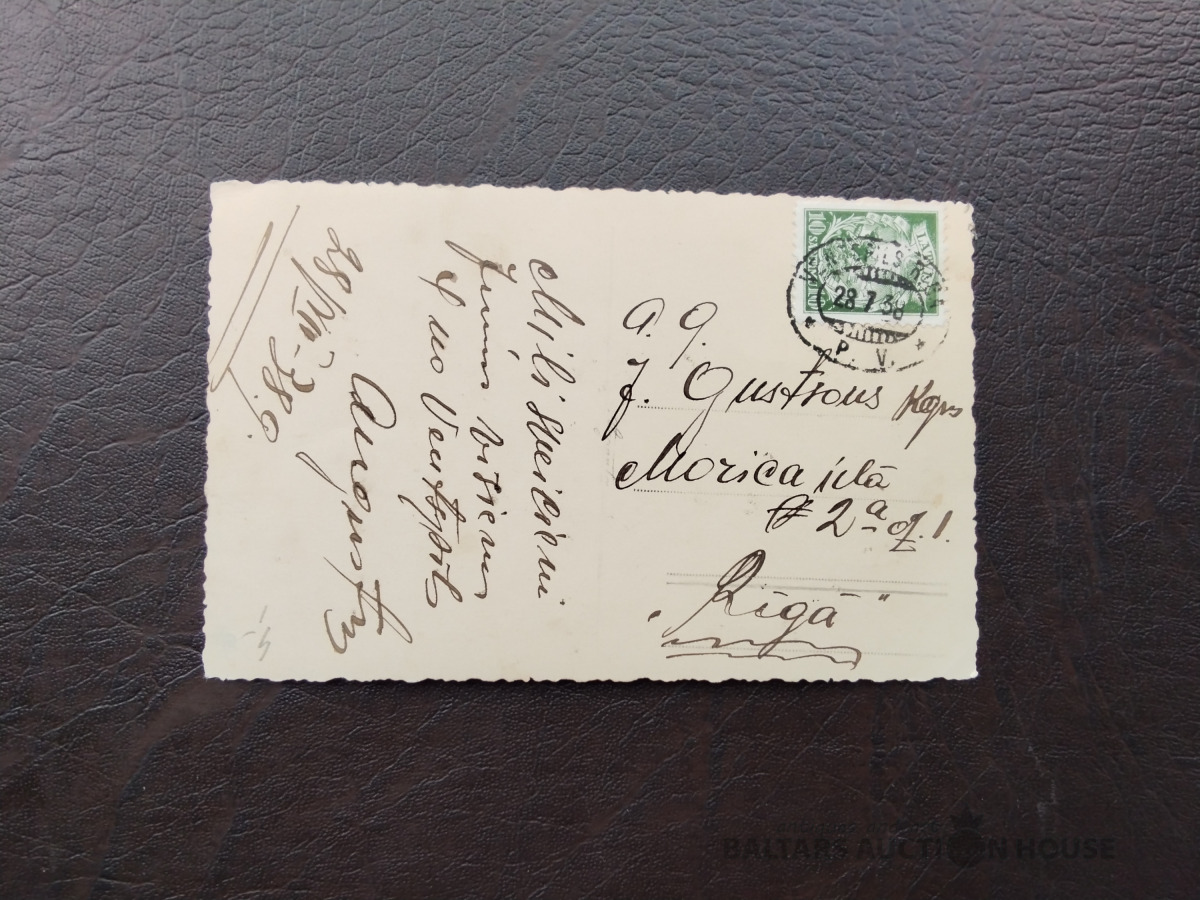 Mīļi sveicieni
Jums visiem
no Ventspils
Augusts
28/VII-38.g.
A. g.
J. Gustsons kgs
Morica ielā
# 2a dz. 1.
"Rīgā"
10 S
28 7 38
P. V.
BALTARS AUCTION HOUSE